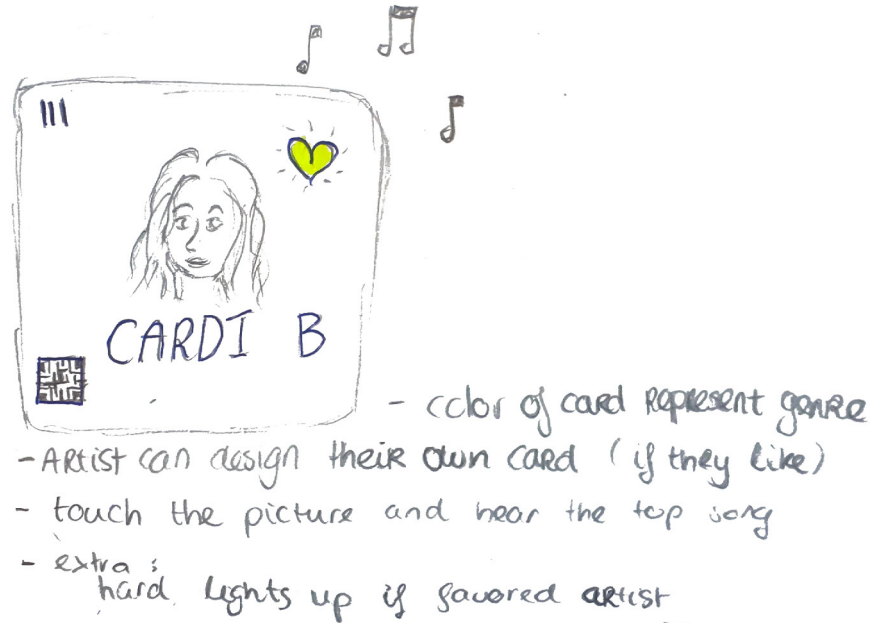 III
CARDI B
- color of card represent genre
- Artist can design their own card (if they like)
- touch the picture and hear the top song
- extra :
hard lights up if favored artist